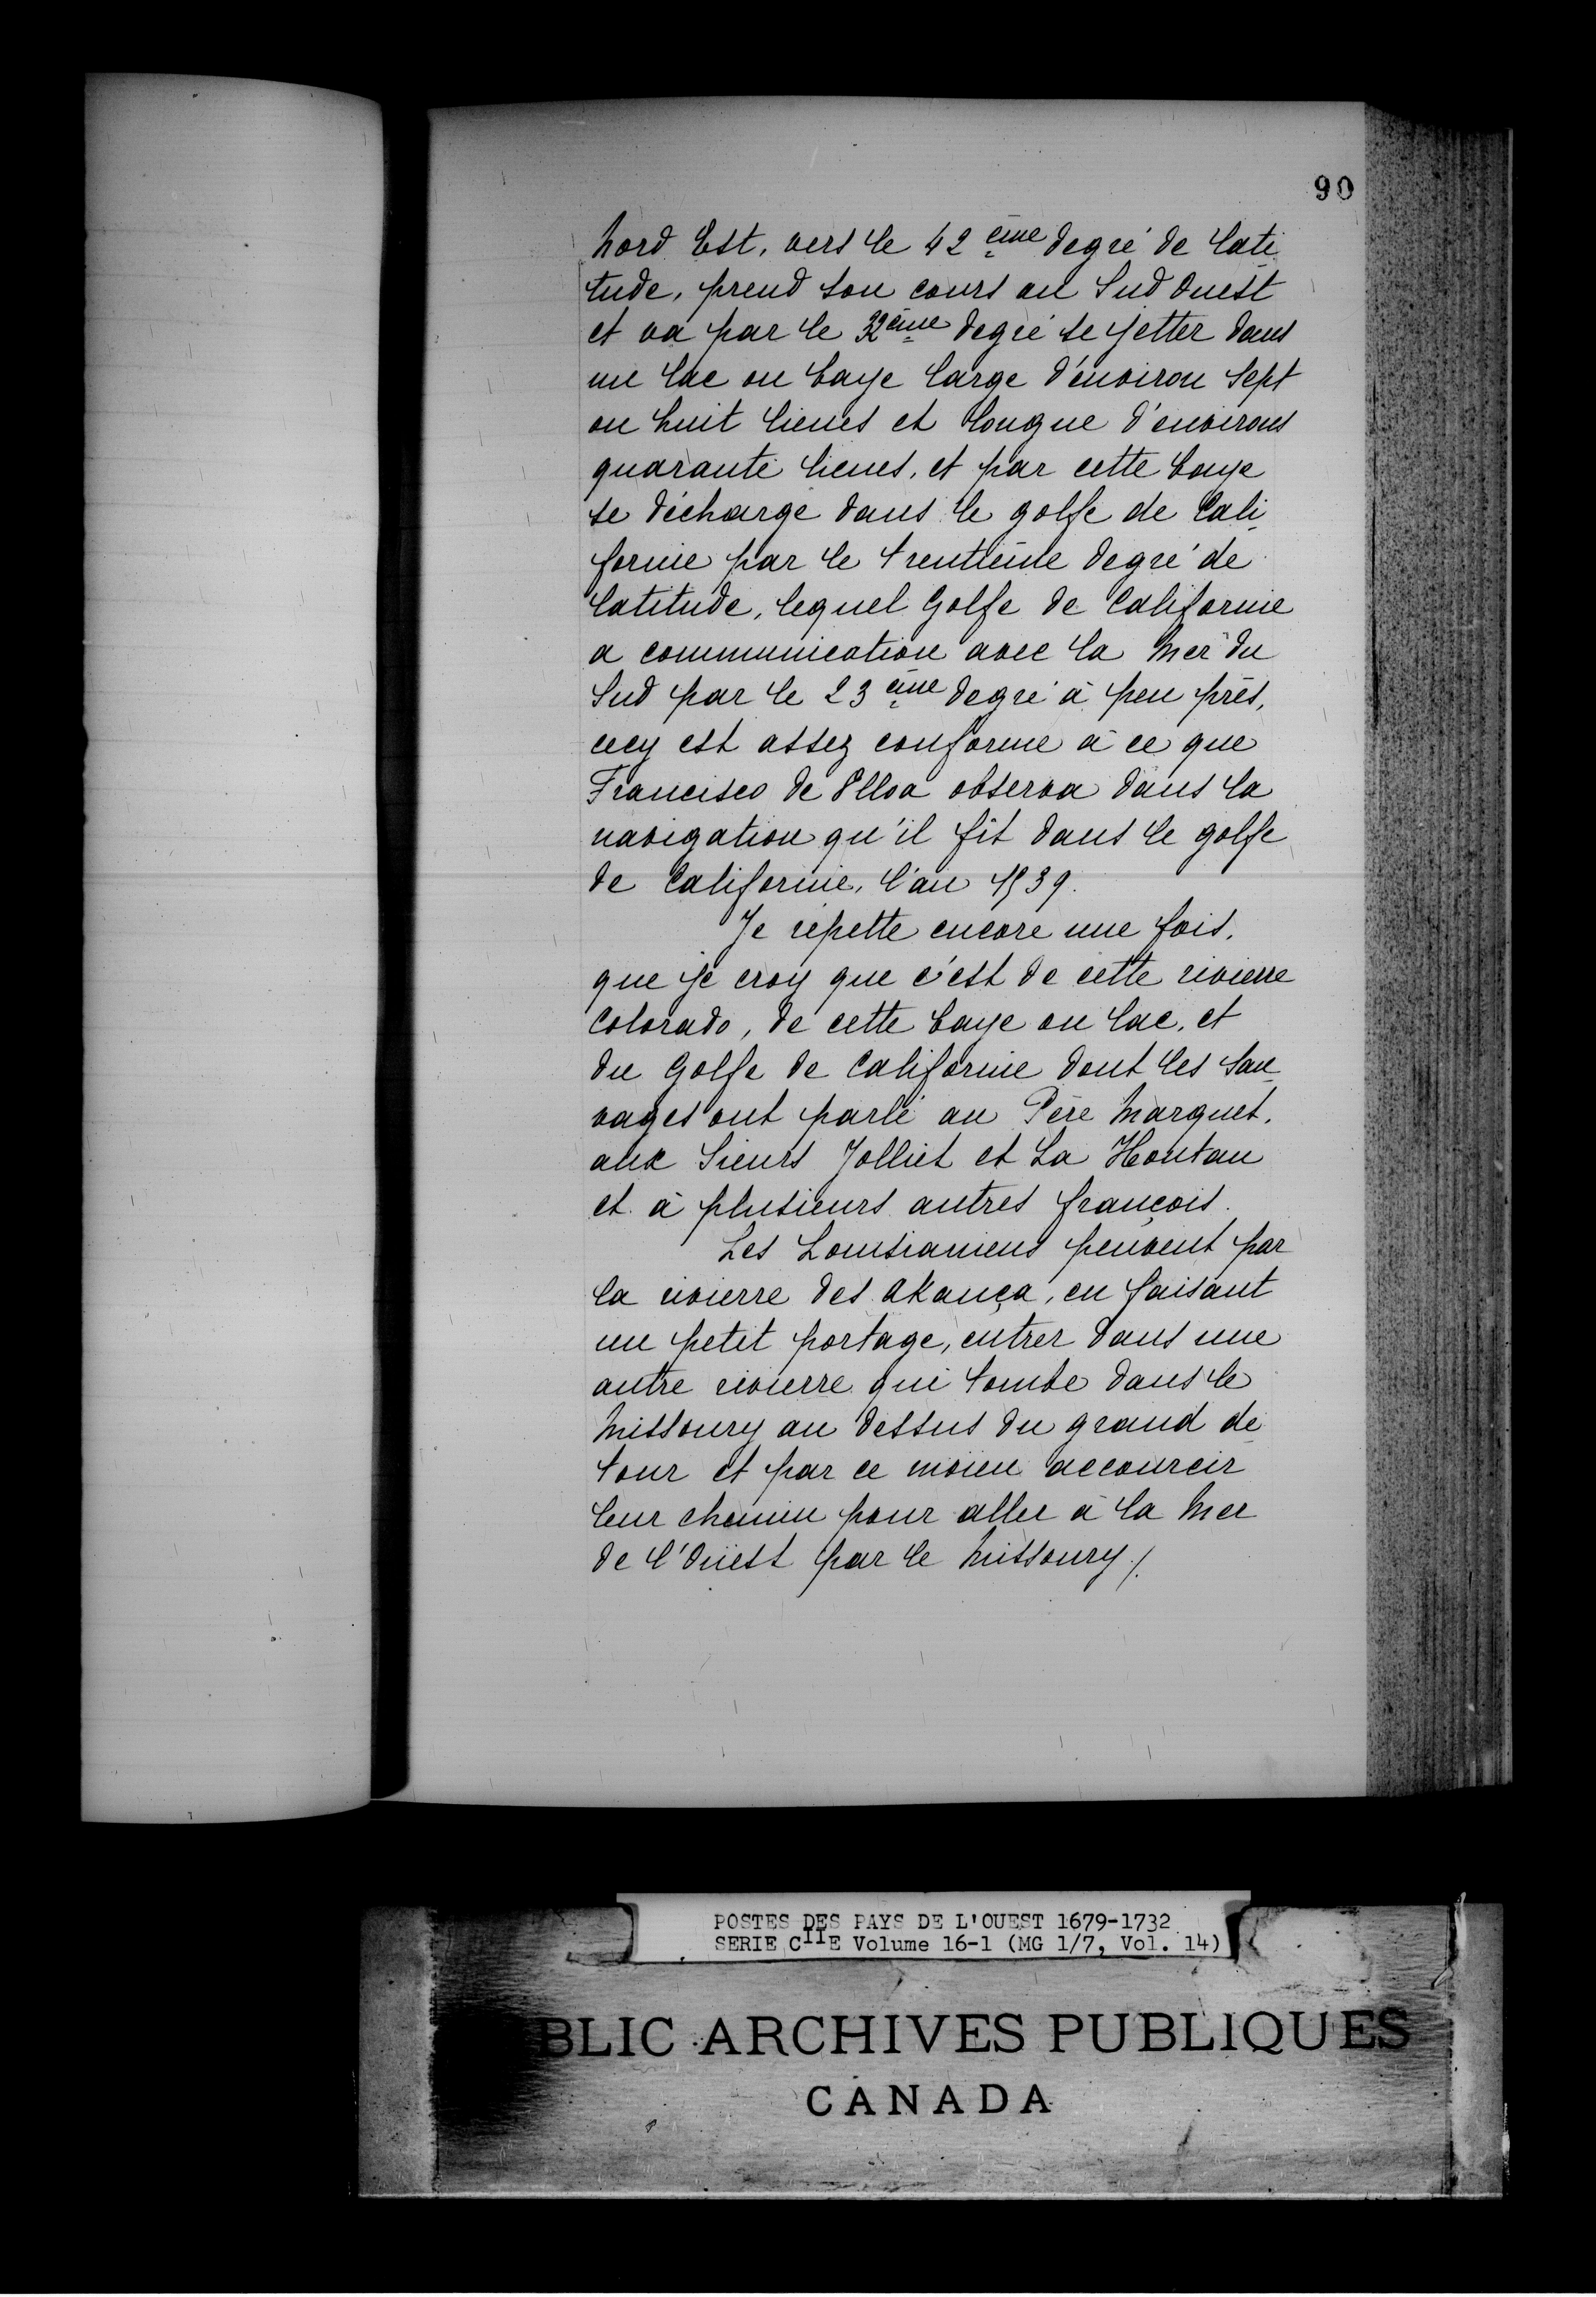 90
Nord Est, vers le 42ème degré de lati
tude, prend son cours au Sud Ouest
et va par le 32ème degré se jetter dans
un lac ou baye large d'environ sept
ou huit lieues et longue d'environs
quarante lieues, et par cette baye
se décharge dans le golfe de Cali
fornie par le trentième degré de
latitude, lequel Golfe de Californie
a communication avec la Mer du
Sud par le 23ème degré à peu près,
cecy est assez conforme à ce que
Francisco de Ulloa observa dans la
navigation qu'il fit dans le golfe
de Californie, l'an 1539.
Je répette encore une fois,
que je croy que c'est de cette rivierre
Colorado, de cette baye ou lac, et
du Golfe de Californie dont les Sau
vages ont parlé au Père Marquet,
aux Sieurs Jolliet et La Hontan
et à plusieurs autres françois.
Les Louisianiens peuvent par
la rivierre des Akança, en faisant
un petit portage, entrer dans une
autre rivierre qui tombe dans le
Missoury au dessus du grand dé
tour et par ce moien accourcir
leur chemin pour aller à la Mer
de l'Oüest par le Missoury ./.
POSTES DES PAYS DE L'OUEST 1679-1732
SERIE CIIE Volume 16-1 (MG 1/7, Vol. 14)
BLIC ARCHIVES PUBLIQUES
CANADA